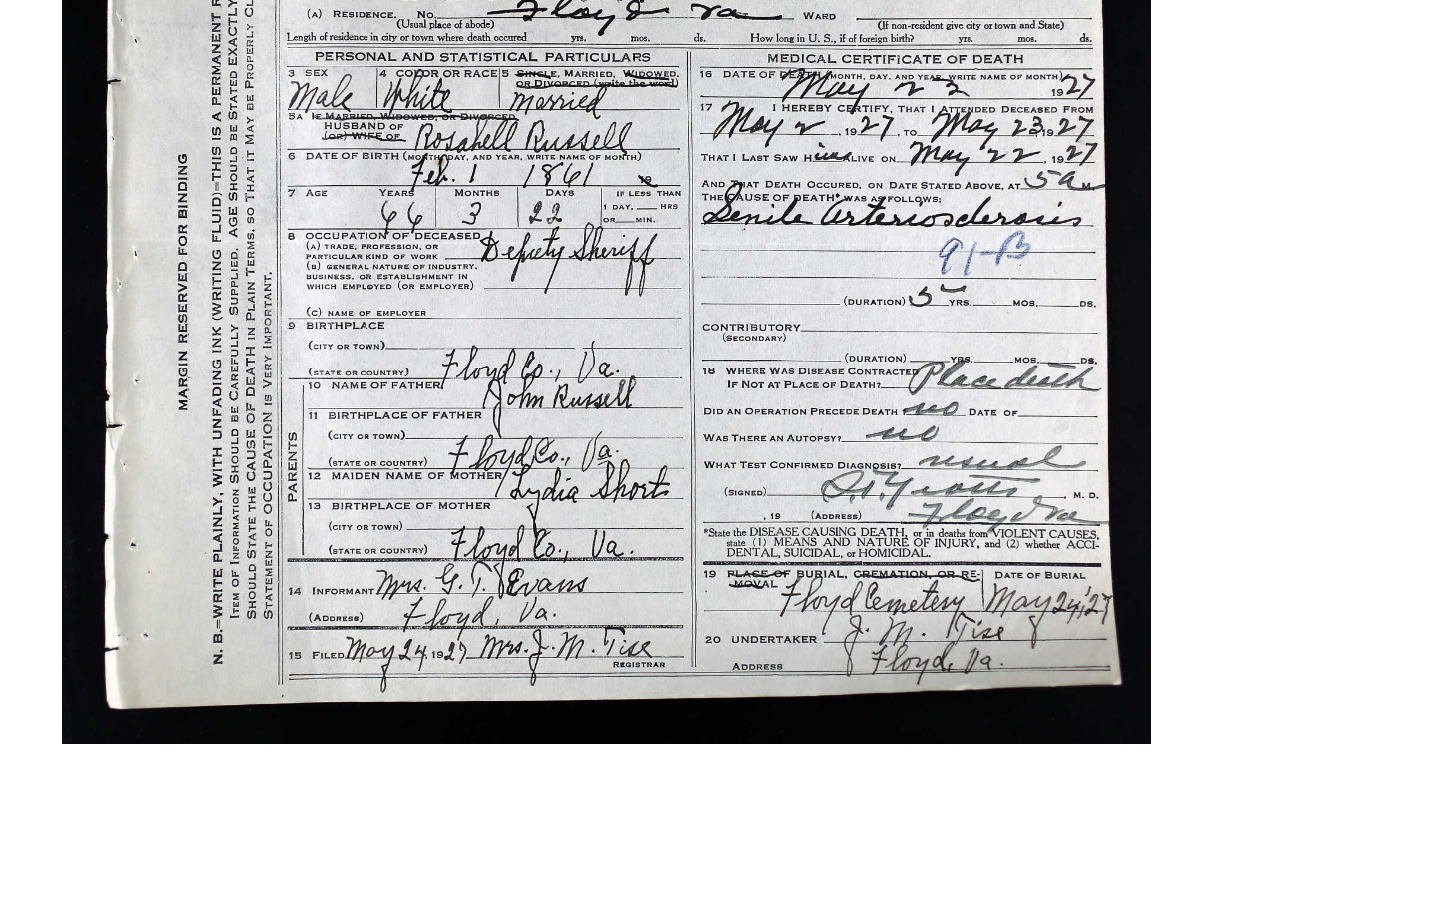 (A) RESIDENCE. No. Floyd Va WARD
(Usual place of abode) (If non-resident give city or town and State)
Length of residence in city or town where death occured yrs. mos. ds. How long in U. S., if of foreign birth? yrs. mos. ds.
PERSONAL AND STATISTICAL PARTICULARS
3 SEX 4 COLOR OR RACE 5 SINGLE, MARRIED, WIDOWED,
OR DIVORCED (write the word)
Male White Married
5A IF MARRIED, WIDOWED, OR DIVORCED
HUSBAND OF
(OR) WIFE OF Rosabell Russell
6 DATE OF BIRTH (MONTH, DAY, AND YEAR, WRITE NAME OF MONTH)
Feb. 1 1861 19
7 AGE YEARS MONTHS DAYS IF LESS THAN
1 DAY, HRS
66 3 22 OR MIN.
8 OCCUPATION OF DECEASED
(A) TRADE, PROFESSION, OR
PARTICULAR KIND OF WORK Deputy Sheriff
(B) GENERAL NATURE OF INDUSTRY,
BUSINESS, OR ESTABLISHMENT IN
WHICH EMPLOYED (OR EMPLOYER)
(C) NAME OF EMPLOYER
9 BIRTHPLACE
(CITY OR TOWN)
(STATE OR COUNTRY) Floyd Co., Va.
PARENTS
10 NAME OF FATHER John Russell
11 BIRTHPLACE OF FATHER
(CITY OR TOWN)
(STATE OR COUNTRY) Floyd Co., Va.
12 MAIDEN NAME OF MOTHER Lydia Shorts
13 BIRTHPLACE OF MOTHER
(CITY OR TOWN)
(STATE OR COUNTRY) Floyd Co., Va.
14 INFORMANT Mrs. G. T. Evans
(ADDRESS) Floyd, Va.
15 FILED May 24, 1927 Mrs. J. M. Tise
REGISTRAR
MEDICAL CERTIFICATE OF DEATH
16 DATE OF DEATH (MONTH, DAY, AND YEAR, WRITE NAME OF MONTH)
May 23 1927
17 I HEREBY CERTIFY, THAT I ATTENDED DECEASED FROM
May 2, 1927, TO May 23, 1927
THAT I LAST SAW Him ALIVE ON May 22, 1927
AND THAT DEATH OCCURED, ON DATE STATED ABOVE, AT 5 a M.
THE CAUSE OF DEATH* WAS AS FOLLOWS:
Senile Arteriosclerosis
91-B
(DURATION) 5 YRS. MOS. DS.
CONTRIBUTORY
(SECONDARY)
(DURATION) YRS. MOS. DS.
18 WHERE WAS DISEASE CONTRACTED
IF NOT AT PLACE OF DEATH? Place death
DID AN OPERATION PRECEDE DEATH? no DATE OF
WAS THERE AN AUTOPSY? no
WHAT TEST CONFIRMED DIAGNOSIS? usual
(SIGNED) , M. D.
, 19 (ADDRESS) Floyd Va
*State the DISEASE CAUSING DEATH, or in deaths from VIOLENT CAUSES,
state (1) MEANS AND NATURE OF INJURY, and (2) whether ACCI-
DENTAL, SUICIDAL, or HOMICIDAL.
19 PLACE OF BURIAL, CREMATION, OR RE-
MOVAL DATE OF BURIAL
Floyd Cemetery May 24, '27
20 UNDERTAKER J. M. Tise
ADDRESS Floyd, Va.
MARGIN RESERVED FOR BINDING
N. B.—WRITE PLAINLY, WITH UNFADING INK (WRITING FLUID)—THIS IS A PERMANENT
ITEM OF INFORMATION SHOULD BE CAREFULLY SUPPLIED. AGE SHOULD BE STATED EXACTLY
SHOULD STATE THE CAUSE OF DEATH IN PLAIN TERMS, SO THAT IT MAY BE PROPERLY
STATEMENT OF OCCUPATION IS VERY IMPORTANT.